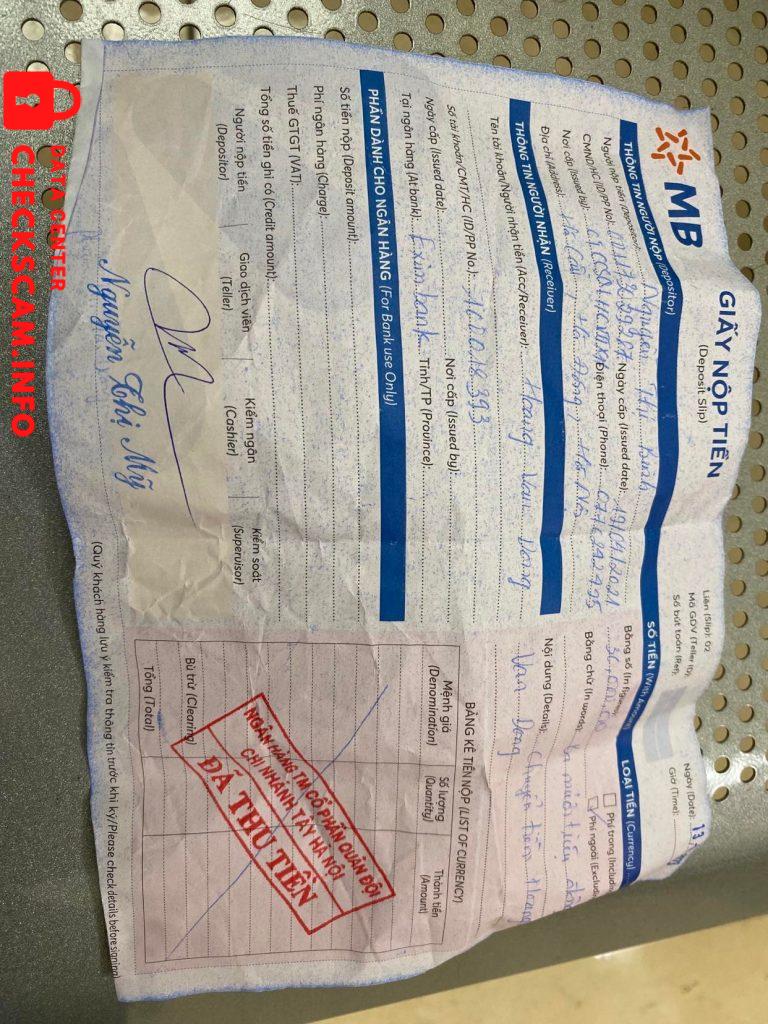 MB
GIẤY NỘP TIỀN
(Deposit Slip)
Liên (Slip): 02
Mã GDV (Teller ID):
Số bút toán (Ref):
Ngày (Date): 13
Giờ (Time):
THÔNG TIN NGƯỜI NỘP (Depositor)
Người nộp tiền (Depositor): Nguyễn Thị
CMND/HC (ID/PP No): Ngày cấp (Issued date):
Nơi cấp (Issued by): Điện thoại (Phone):
Địa chỉ (Address):
SỐ TIỀN
Bằng số (In
Bằng chữ (In words):
Nội dung (Details): Chuyển tiền Hoang
Van Dong
LOẠI TIỀN (Currency)
Phí trong
Phí ngoài
THÔNG TIN NGƯỜI NHẬN (Receiver)
Tên tài khoản/Người nhận tiền (Acc/Receiver): Hoang Van Dong
Số tài khoản/CMT/HC (ID/PP No.):
Ngày cấp (Issued date): Nơi cấp (Issued by):
Tại ngân hàng (At bank): Eximbank Tỉnh/TP (Province):
PHẦN DÀNH CHO NGÂN HÀNG (For Bank use Only)
Số tiền nộp (Deposit amount):
Phí ngân hàng (Charge):
Thuế GTGT (VAT):
Tổng số tiền ghi có (Credit amount):
Người nộp tiền
(Depositor)
Giao dịch viên
(Teller)
Kiểm ngân
(Cashier)
Kiểm soát
(Supervisor)
Nguyễn Thị Mỹ
BẢNG KÊ TIỀN NỘP (LIST OF CURRENCY)
Mệnh giá
(Denomination)
Số lượng
(Quantity)
Thành tiền
(Amount)
Bù trừ (Clearing)
Tổng (Total)
NGÂN HÀNG TM CỔ PHẦN QUÂN ĐỘI
CHI NHÁNH TÂY HÀ NỘI
ĐÃ THU TIỀN
(Quý khách hàng lưu ý kiểm tra thông tin trước khi ký/Please check details before signing)
DATA CENTER
CHECKSCAM.INFO